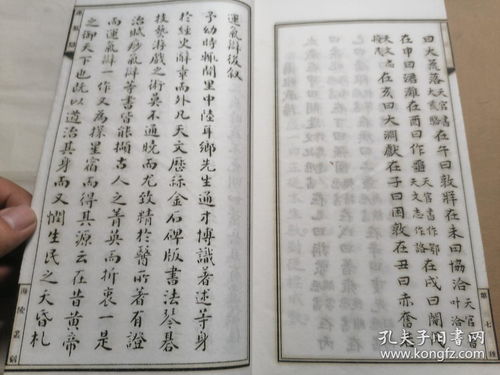 曰大荒落天官書大荒駱在午曰敦牂在未曰協洽天官書叶洽
在申曰涒灘在酉曰作噩天官書作鄂天文志作詻在戌曰閹
在亥曰大淵獻在子曰困敦在丑曰赤奮若
運氣辯後敘
予幼時輒聞里中陸耳鄉先生通才博識著述等身
於經史辭章而外凡天文歷綜金石碑版書法琴碁
技藝游戲之術莫不通曉而尤致精於醫所著有證
治賦痧氣辯等書皆能擷古人之菁英而折衷一是
而運氣辯一作又為探星宿而得其源云在昔黃帝
之御天下也既以道治其身而又憫生民之夭昏札
海陵叢刻
孔夫子旧书网
www.kongfz.com